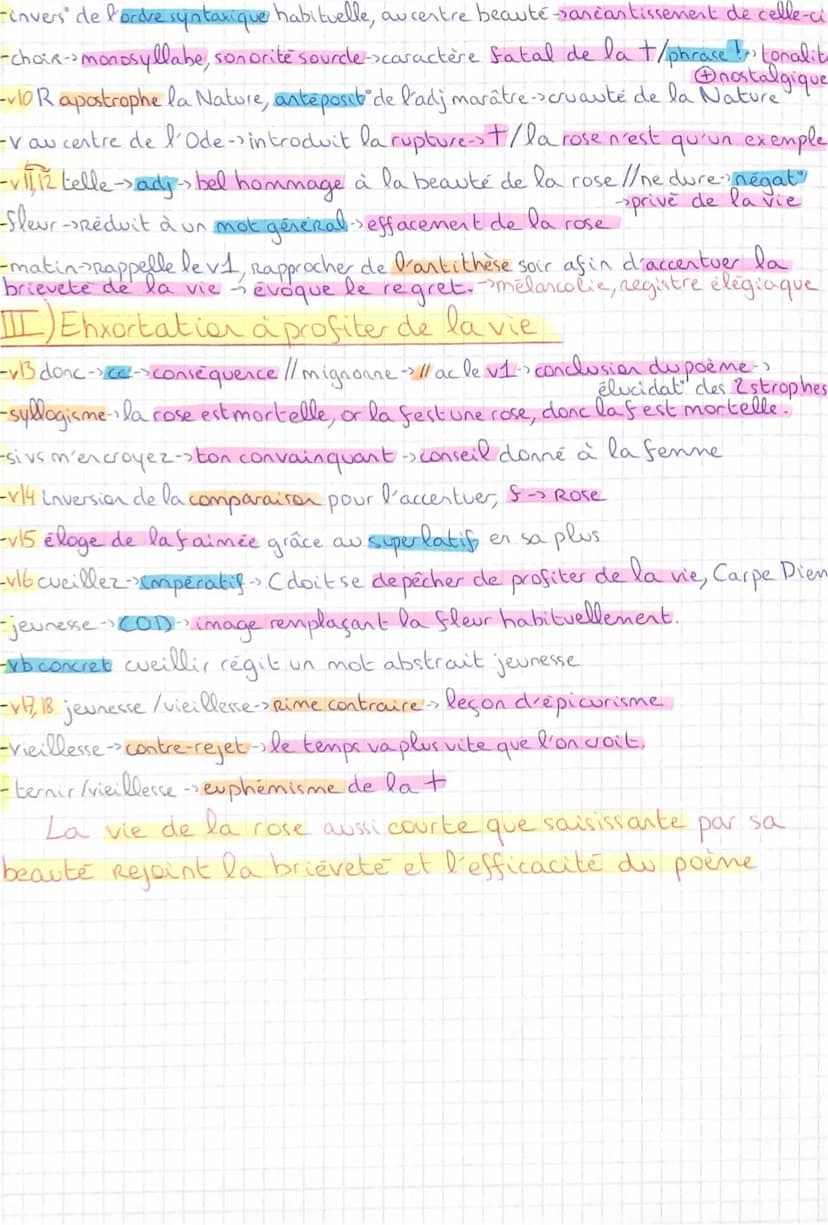 -invers° de l'ordre syntaxique habituelle, au centre beauté->anéantissement de celle-ci
-choir->monosyllabe, sonorité sourde->caractère fatal de la +/phrase !-> tonalit
⊕nostalgique
-v10 R apostrophe la Nature, antéposit° de l'adj marâtre->cruauté de la Nature
-v au centre de l'Ode->introduit la rupture->+/la rose n'est qu'un exemple
-v11,12 telle->adj->bel hommage à la beauté de la rose//ne dure->négat°
->privé de la vie
-fleur->Réduit à un mot général->effacement de la rose
-matin->rappelle le v1, rapprocher de l'antithèse soir afin d'accentuer la
brieveté de la vie -> évoque le regret.->mélancolie, registre élégiaque
III) Ehxortation à profiter de la vie
-v13 donc->cc->conséquence//mignonne->//ac le v1->conclusion du poème->
élucidat° des 2 strophes
-syllogisme->la rose est mortelle, or la f est une rose, donc la f est mortelle.
-si vs m'en croyez->ton convainquant->conseil donné à la femme
-v14 inversion de la comparaison pour l'accentuer, f-> Rose
-v15 éloge de la f aimée grâce au superlatif en sa plus
-v16 cueillez->impératif-> C doit se depêcher de profiter de la vie, Carpe Diem
-jeunesse->COD->image remplaçant la fleur habituellement.
-vb concret cueillir régit un mot abstrait jeunesse
-v17,18 jeunesse/vieillesse->Rime contraire->leçon d'épicurisme
-vieillesse->contre-rejet->le temps va plus vite que l'on croit.
-ternir/vieillesse->euphémisme de la +
La vie de la rose aussi courte que saisissante par sa
beauté rejoint la brièveté et l'efficacité du poème